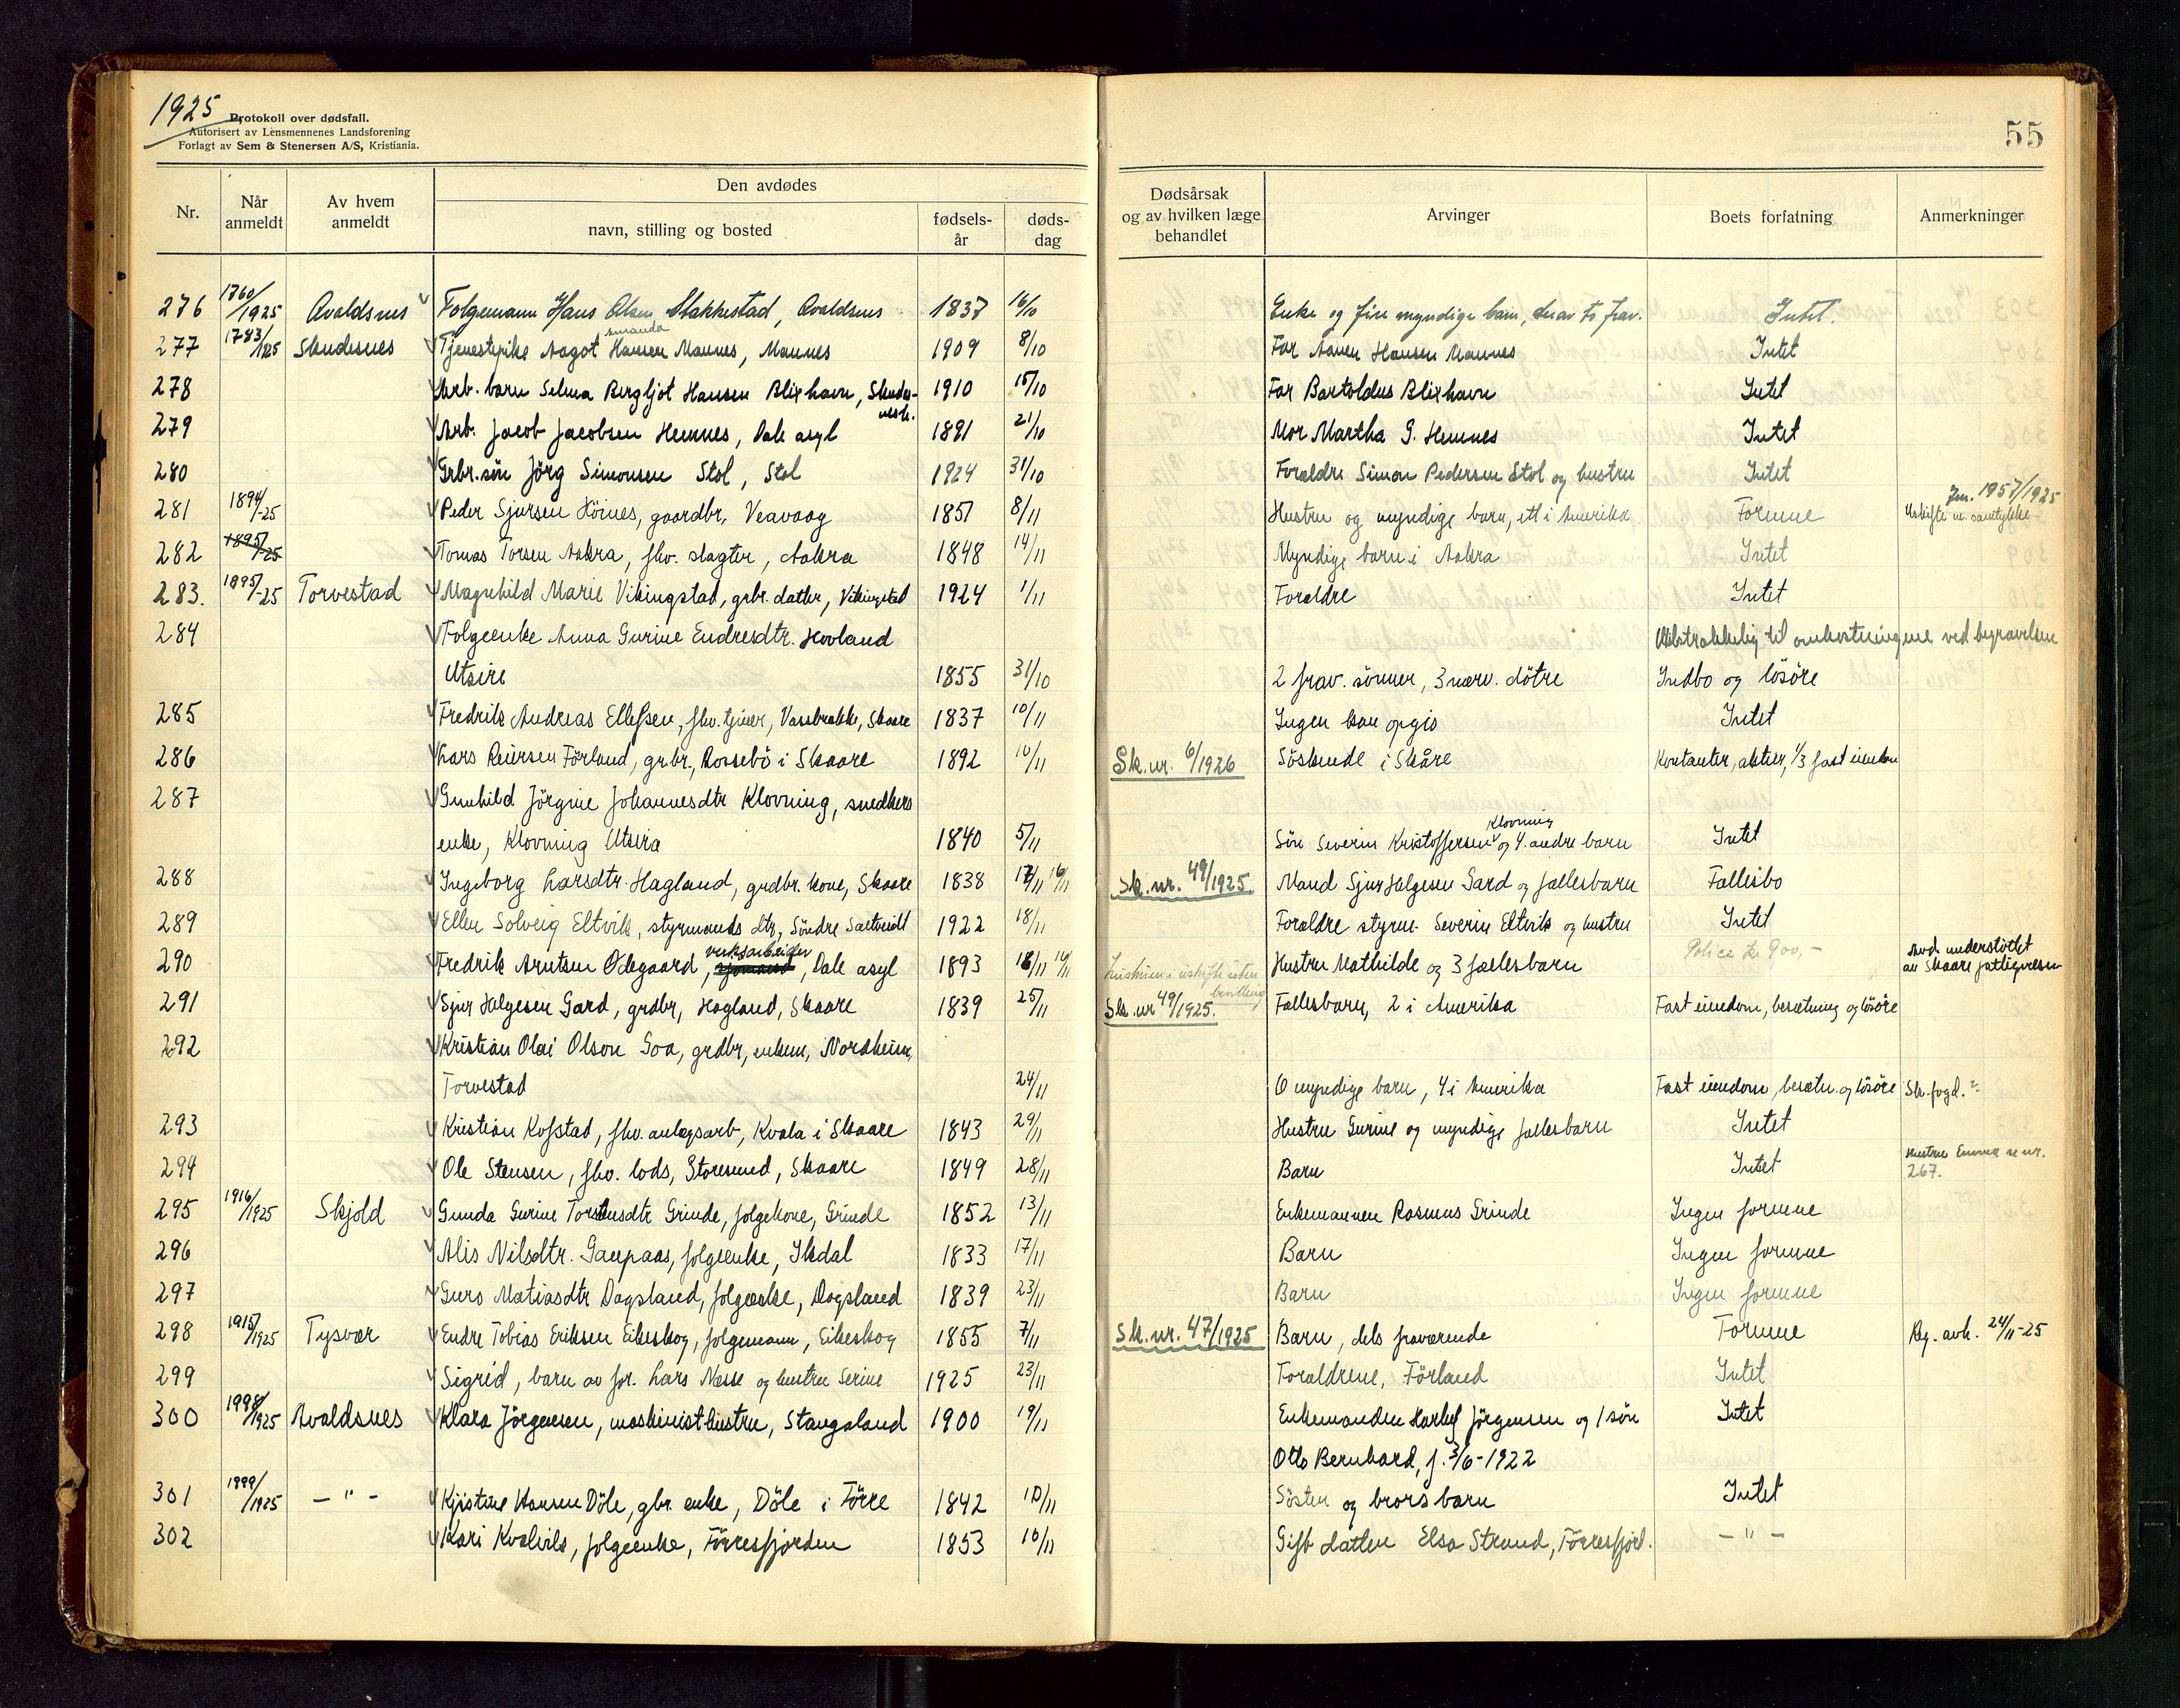 1925
Protokoll over dødsfall.
Autorisert av Lensmennenes Landsforening
Forlagt av Sem & Stenersen A/S, Kristiania.
55
Nr. Når anmeldt Av hvem anmeldt Den avdødes navn, stilling og bosted fødselsår dødsdag Dødsårsak og av hvilken læge behandlet Arvinger Boets forfatning Anmerkninger
276 1760/1925 Avaldsnes Folgemann Hans Olsen Stakkestad, Avaldsnes 1837 16/10 Enke og fire myndige barn, derav to frav. Intet.
277 1783/1925 Skudesnes Tjenestepike Aagot Hansen Mannes, Mannes 1909 8/10 Far Hansen Mannes Intet
278 Arb. barn Selma Bergljot Hansen Blixhavn, Skudesnesh. 1910 15/10 Far Bartoldus Blixhavn Intet
279 Arb. Jacob Jacobsen Hemnes, Dale asyl 1891 21/10 Mor Martha G. Hemnes Intet
280 Grbr. søn Jörg Simonsen Stol, Stol 1924 31/10 Forældre Simon Pedersen Stol og hustru Intet
281 1894/-25 Peder Sjursen Höines, gaardbr, Veavaag 1851 8/11 Hustru og myndige barn, ett i Amerika Formue Jnr. 1957/1925 Uskifte m. samtykke
282 1895/-25 Tomas Torsen Aakra, fhv. slagter, Aakra 1848 14/11 Myndige barn i Aakra Intet
283. 1895/-25 Torvestad Magnhild Marie Vikingstad, grbr. datter, Vikingstad 1924 1/11 Forældre Intet
284 Folgeenke Anna Gurine Endresdtr. Hovland Utilstrækkelig til omkostningene ved begravelsen
Utsire 1855 31/10 2 frav. sönner, 3 nærv. dötre Indbo og lösöre
285 Fredrik Andreas Ellefsen, fhv. tjener, Vassbrække, Skaare 1837 10/11 Ingen kan opgis Intet
286 Lars Reiersen Förland, grbr., Rossebö i Skaare 1892 10/11 Sk. nr. 6/1926 Söskende i Skåre Kontanter, aktier, 1/3 fast eiendom
287 Gunhild Jörgine Johannesdtr Klovning, snedkers
enke, Klovning Utsira 1840 5/11 Sön Severin Kristoffersen Klovning og 4 andre barn Intet
288 Ingeborg Larsdtr. Hagland, grdbr. kone, Skaare 1838 17/11 16/11 Sk. nr. 49/1925. Mand Sjur Helgesen Gard og fællesbarn Fællesbo
289 Ellen Solveig Eltvik, styrmands dtr, Söndre Saltveidt 1922 18/11 Forældre styrm. Severin Eltvik og hustru Intet
290 Fredrik Arntsen Ödegaard, verksarbeider, Dale asyl 1893 18/11 19/11 Hustruen i uskifte uten bevilling Hustru Mathilde og 3 fællesbarn Police kr 900,- Avd. understöttet av Skaare fattigvæsen
291 Sjur Helgesen Gard, grdbr, Hagland, Skaare 1839 25/11 Sk. nr 49/1925. Fællesbarn, 2 i Amerika Fast eiendom, besætning og lösöre
292 Kristian Olai Olson Goa, grdbr, enkem, Nordheim,
Torvestad 24/11 6 myndige barn, 4 i Amerika Fast eiendom, besætn. og lösöre Sk. fogd.?
293 Kristian Kofstad, fhv. anlægsarb, Kvala i Skaare 1843 29/11 Hustru Gurine og myndige fællesbarn Intet
294 Ole Stensen, fhv. lods, Storesund, Skaare 1849 28/11 Barn Intet Hustru Emma se nr. 267.
295 1916/1925 Skjold Gunda Gurine Torstensdtr Grinde, folgekone, Grinde 1852 13/11 Enkemannen Rasmus Grinde Ingen formue
296 Alis Nilsdtr. Gaupaas, folgeenke, Ikdal 1833 17/11 Barn Ingen formue
297 Guro Matiasdtr Dagsland, folgeenke, Dagsland 1839 23/11 Barn Ingen formue
298 1915/1925 Tysvær Endre Tobias Eriksen Eikeskog, folgemann, Eikeskog 1855 7/11 Sk. nr. 47/1925 Barn, dels fraværende Formue Reg. avh. 24/11-25
299 Sigrid, barn av for. Lars Næsse og hustru Serine 1925 23/11 Forældrene, Förland Intet
300 1998/1925 Avaldsnes Klara Jörgensen, maskinisthustru, Stangaland 1900 19/11 Enkemanden Jörgensen og 1 sön Intet
Otto Bernhard, f. 3/6-1922
301 1999/1925 - " - Kjistine Hansen Döle, gbr. enke, Döle i Förre 1842 10/11 Söster og brors barn Intet
302 Kari Kvalvik, folgeenke, Förresfjorden 1853 10/11 Gift datter Elsa Strand, Förresfjord. - " -